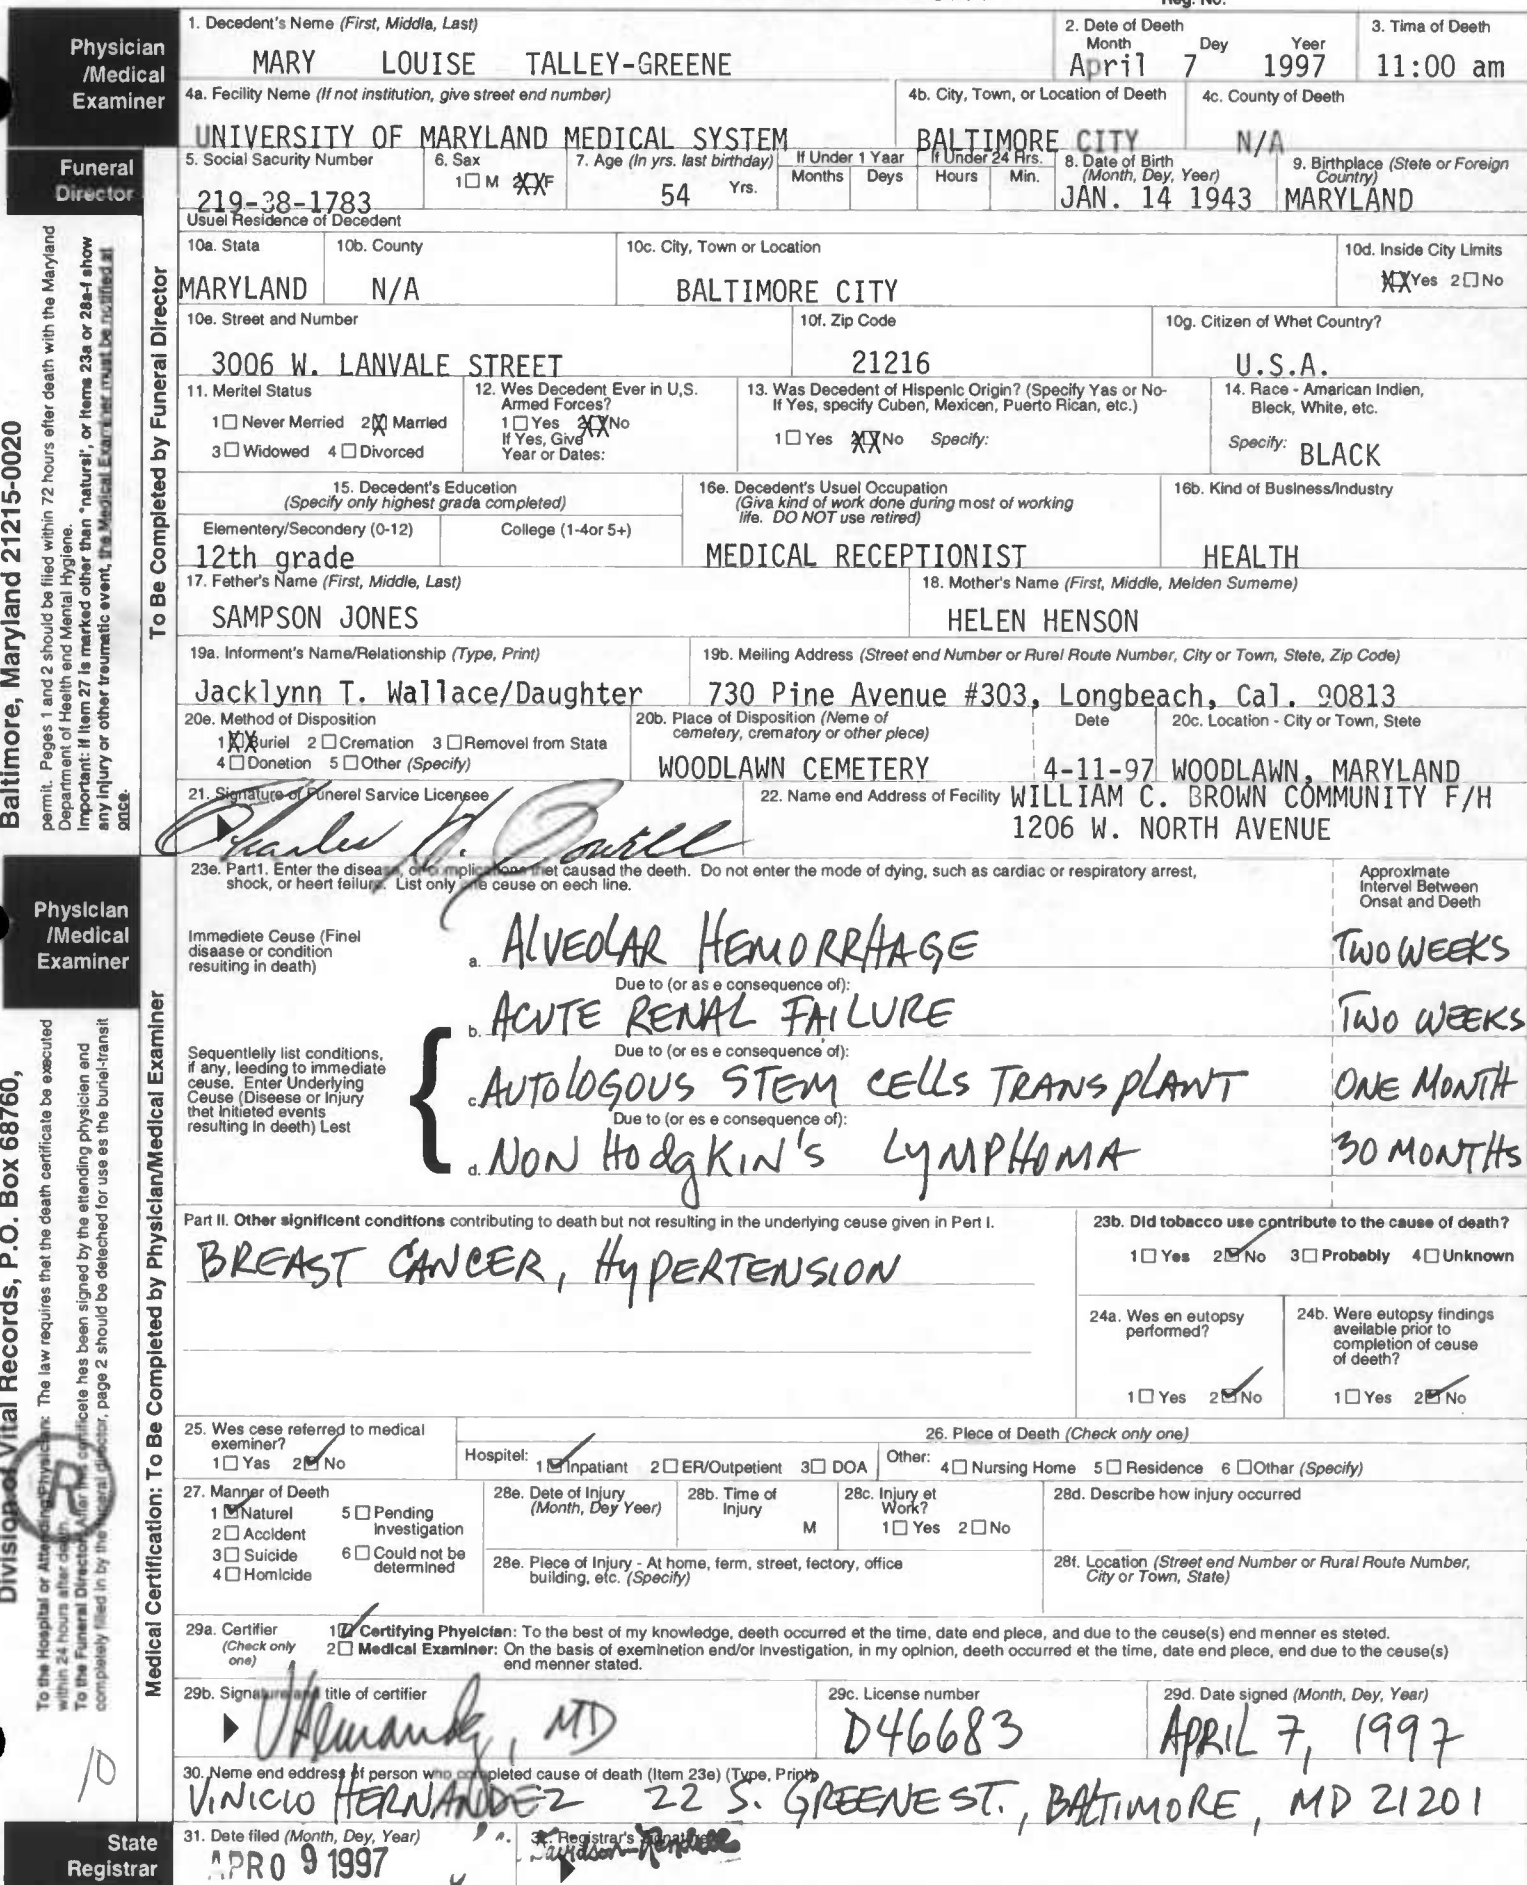 Reg. No.
Physician /Medical Examiner
1. Decedent's Neme (First, Middla, Last)
MARY LOUISE TALLEY-GREENE
2. Dete of Deeth
Month Dey Yeer
April 7 1997
3. Tima of Deeth
11:00 am
4a. Fecility Name (If not institution, give street end number)
UNIVERSITY OF MARYLAND MEDICAL SYSTEM
4b. City, Town, or Location of Deeth
BALTIMORE CITY
4c. County of Deeth
N/A
Funeral Director
5. Social Sacurity Number
219-38-1783
6. Sax
1 M XX F
7. Age (In yrs. last birthday)
54 Yrs.
If Under 1 Yaar
Months Deys
If Under 24 Hrs.
Hours Min.
8. Date of Birth
(Month, Dey, Yeer)
JAN. 14 1943
9. Birthplace (Stete or Foreign Country)
MARYLAND
Usuel Residence of Decedent
10a. Stata
MARYLAND
10b. County
N/A
10c. City, Town or Location
BALTIMORE CITY
10d. Inside City Limits
XX Yes 2 No
10e. Street and Number
3006 W. LANVALE STREET
10f. Zip Code
21216
10g. Citizen of Whet Country?
U.S.A.
11. Meritel Status
1 Never Merried 2 X Married
3 Widowed 4 Divorced
12. Wes Decedent Ever in U,S.
Armed Forces?
1 Yes 2 XX No
If Yes, Give
Year or Dates:
13. Was Decedent of Hispenic Origin? (Specify Yas or No-
If Yes, specify Cuben, Mexican, Puerto Rican, etc.)
1 Yes 2 XX No Specify:
14. Race - Amarican Indien,
Bleck, White, etc.
Specify: BLACK
15. Decedent's Education
(Specify only highest grada completed)
Elementery/Secondery (0-12) College (1-4or 5+)
12th grade
16e. Decedent's Usuel Occupation
(Giva kind of work done during most of working
life. DO NOT use retired)
MEDICAL RECEPTIONIST
16b. Kind of Business/Industry
HEALTH
17. Father's Name (First, Middle, Last)
SAMPSON JONES
18. Mother's Name (First, Middle, Melden Sumeme)
HELEN HENSON
19a. Informent's Name/Relationship (Type, Print)
Jacklynn T. Wallace/Daughter
19b. Meiling Address (Street end Number or Rurel Route Number, City or Town, Stete, Zip Code)
730 Pine Avenue #303, Longbeach, Cal. 90813
20e. Method of Disposition
1 XX Buriel 2 Cremation 3 Removel from Stata
4 Donetion 5 Other (Specify)
20b. Place of Disposition (Neme of
cemetery, crematory or other plece)
WOODLAWN CEMETERY
Dete
4-11-97
20c. Location - City or Town, Stete
WOODLAWN, MARYLAND
21. Signature of Funerel Sarvice Licensee
22. Name end Address of Fecility WILLIAM C. BROWN COMMUNITY F/H
1206 W. NORTH AVENUE
To Be Completed by Funeral Director
Baltimore, Maryland 21215-0020
permit. Peges 1 and 2 should be filed within 72 hours efter death with the Maryland
Department of Heelth end Mental Hygiene.
Important: If item 27 is marked other than "natural", or items 23a or 28a-f show
any injury or other treumatic event, the Medical Examiner must be notified at
once.
Physician /Medical Examiner
23e. Part1. Enter the disease, or complications thet causad the deeth. Do not enter the mode of dying, such as cardiac or respiratory arrest,
shock, or heert feilure. List only one ceuse on each line.
Approximate
Intervel Between
Onsat and Deeth
Immediete Ceuse (Finel
disaase or condition
resulting in death)
a. ALVEOLAR HEMORRHAGE TWO WEEKS
Due to (or as e consequence of):
b. ACUTE RENAL FAILURE TWO WEEKS
Sequentielly list conditions,
if any, leeding to immediate
ceuse. Enter Underlying
Ceuse (Diseese or Injury
thet Initieted events
resulting In death) Lest
Due to (or es e consequence of):
c. AUTOLOGOUS STEM CELLS TRANSPLANT ONE MONTH
Due to (or es e consequence of):
d. NON HODGKIN'S LYMPHOMA 30 MONTHS
Part II. Other significent conditions contributing to death but not resulting in the underlying ceuse given in Pert I.
BREAST CANCER, HYPERTENSION
23b. Did tobacco use contribute to the cause of death?
1 Yes 2 No 3 Probably 4 Unknown
24a. Wes en eutopsy
performed?
1 Yes 2 No
24b. Were eutopsy findings
aveilable prior to
completion of ceuse
of deeth?
1 Yes 2 No
25. Wes cese referred to medical
exeminer?
1 Yas 2 No
26. Plece of Deeth (Check only one)
Hospitel: 1 Inpatiant 2 ER/Outpetient 3 DOA
Other: 4 Nursing Home 5 Residence 6 Othar (Specify)
27. Manner of Deeth
1 Naturel
2 Accident
3 Suicide
4 Homicide
5 Pending
Investigation
6 Could not be
determined
28e. Dete of Injury
(Month, Dey Year)
28b. Time of
Injury
M
28c. Injury et
Work?
1 Yes 2 No
28d. Describe how injury occurred
28e. Plece of Injury - At home, ferm, street, fectory, office
building, etc. (Specify)
28f. Location (Street end Number or Rural Route Number,
City or Town, State)
29a. Certifier
(Check only
one)
1 Certifying Phyeicfan: To the best of my knowledge, deeth occurred et the time, date end plece, and due to the ceuse(s) end menner es steted.
2 Medical Examiner: On the basis of exeminetion end/or Investigation, in my opinion, deeth occurred et the time, date end plece, end due to the ceuse(s)
end menner stated.
29b. Signature and title of certifier
VHernandez, MD
29c. License number
D46683
29d. Date signed (Month, Dey, Year)
APRIL 7, 1997
30. Neme end eddress of person who completed cause of death (Item 23e) (Type, Print)
VINICIO HERNANDEZ 22 S. GREENE ST., BALTIMORE, MD 21201
Medical Certification: To Be Completed by Physician/Medical Examiner
Division of Vital Records, P.O. Box 68760,
To the Hospital or Attending Physician: The law requires that the death certificate be executed
within 24 hours after death.
To the Funeral Director: After this certificete hes been signed by the ettending physicien end
completely filled in by the funeral director, page 2 should be deteched for use es the buriel-transit
R
10
State Registrar
31. Dete filed (Month, Dey, Year)
APR 0 9 1997
32. Registrar's Signature